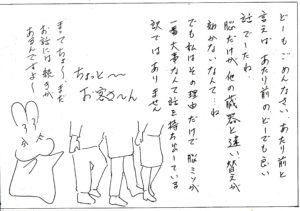 どーもごめんなさい あたり前と
言えば あたり前の どーでも良い
話でーたね
脳だけが 他の臓器と違い 替えが
効かないなんて…ね
でも私は その理由だけで 脳ミソが
一番大事なんて話を持ち出している
訳ではありません
ちょっと〜
お客さ〜ん
まってちょ〜、まだ
お話には続きが
あるんですよ〜